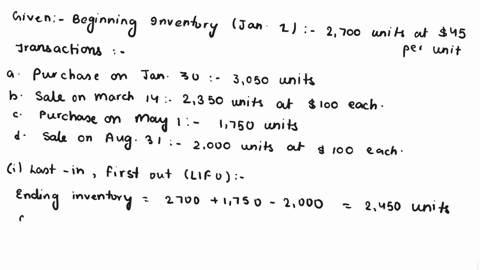 Given:- Beginning Inventory (Jan. 1):- 2,700 units at $45 per unit
Transactions:-
a. Purchase on Jan. 30:- 3,050 units
b. Sale on March 14:- 2,350 units at $100 each.
c. Purchase on May 1:- 1,750 units
d. Sale on Aug. 31:- 2,000 units at $100 each.
(i) Last-in, first out (LIFO):-
Ending inventory = 2700 + 1,750 - 2,000 = 2,450 units